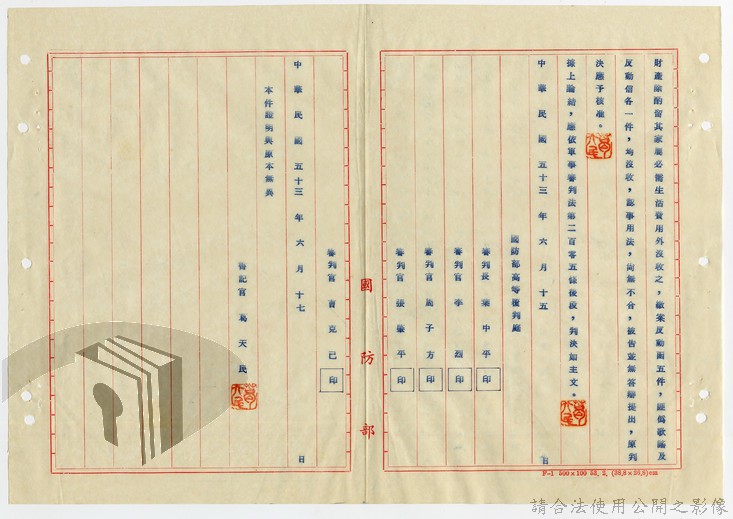 財產除酌留其家屬必需生活費用外沒收之,繳案反動函五件,匪偽歌謠及
反動信各一件,均沒收,認事用法,尚無不合,被告並無答辯提出,原判
決應予核准。
據上論結,應依軍事審判法第二百零五條後段,判決如主文。
中華民國五十三年六月十五日
國防部高等覆判庭
審判長 葉中平 印
審判官 李烈 印
審判官 周子方 印
審判官 張肇平 印
國防部
審判官 曹克己 印
中華民國五十三年六月十七日
本件證明與原本無異
書記官 葛天民
F-1 500×100 53, 2, (38,5×26,5)cm
請合法使用公開之影像